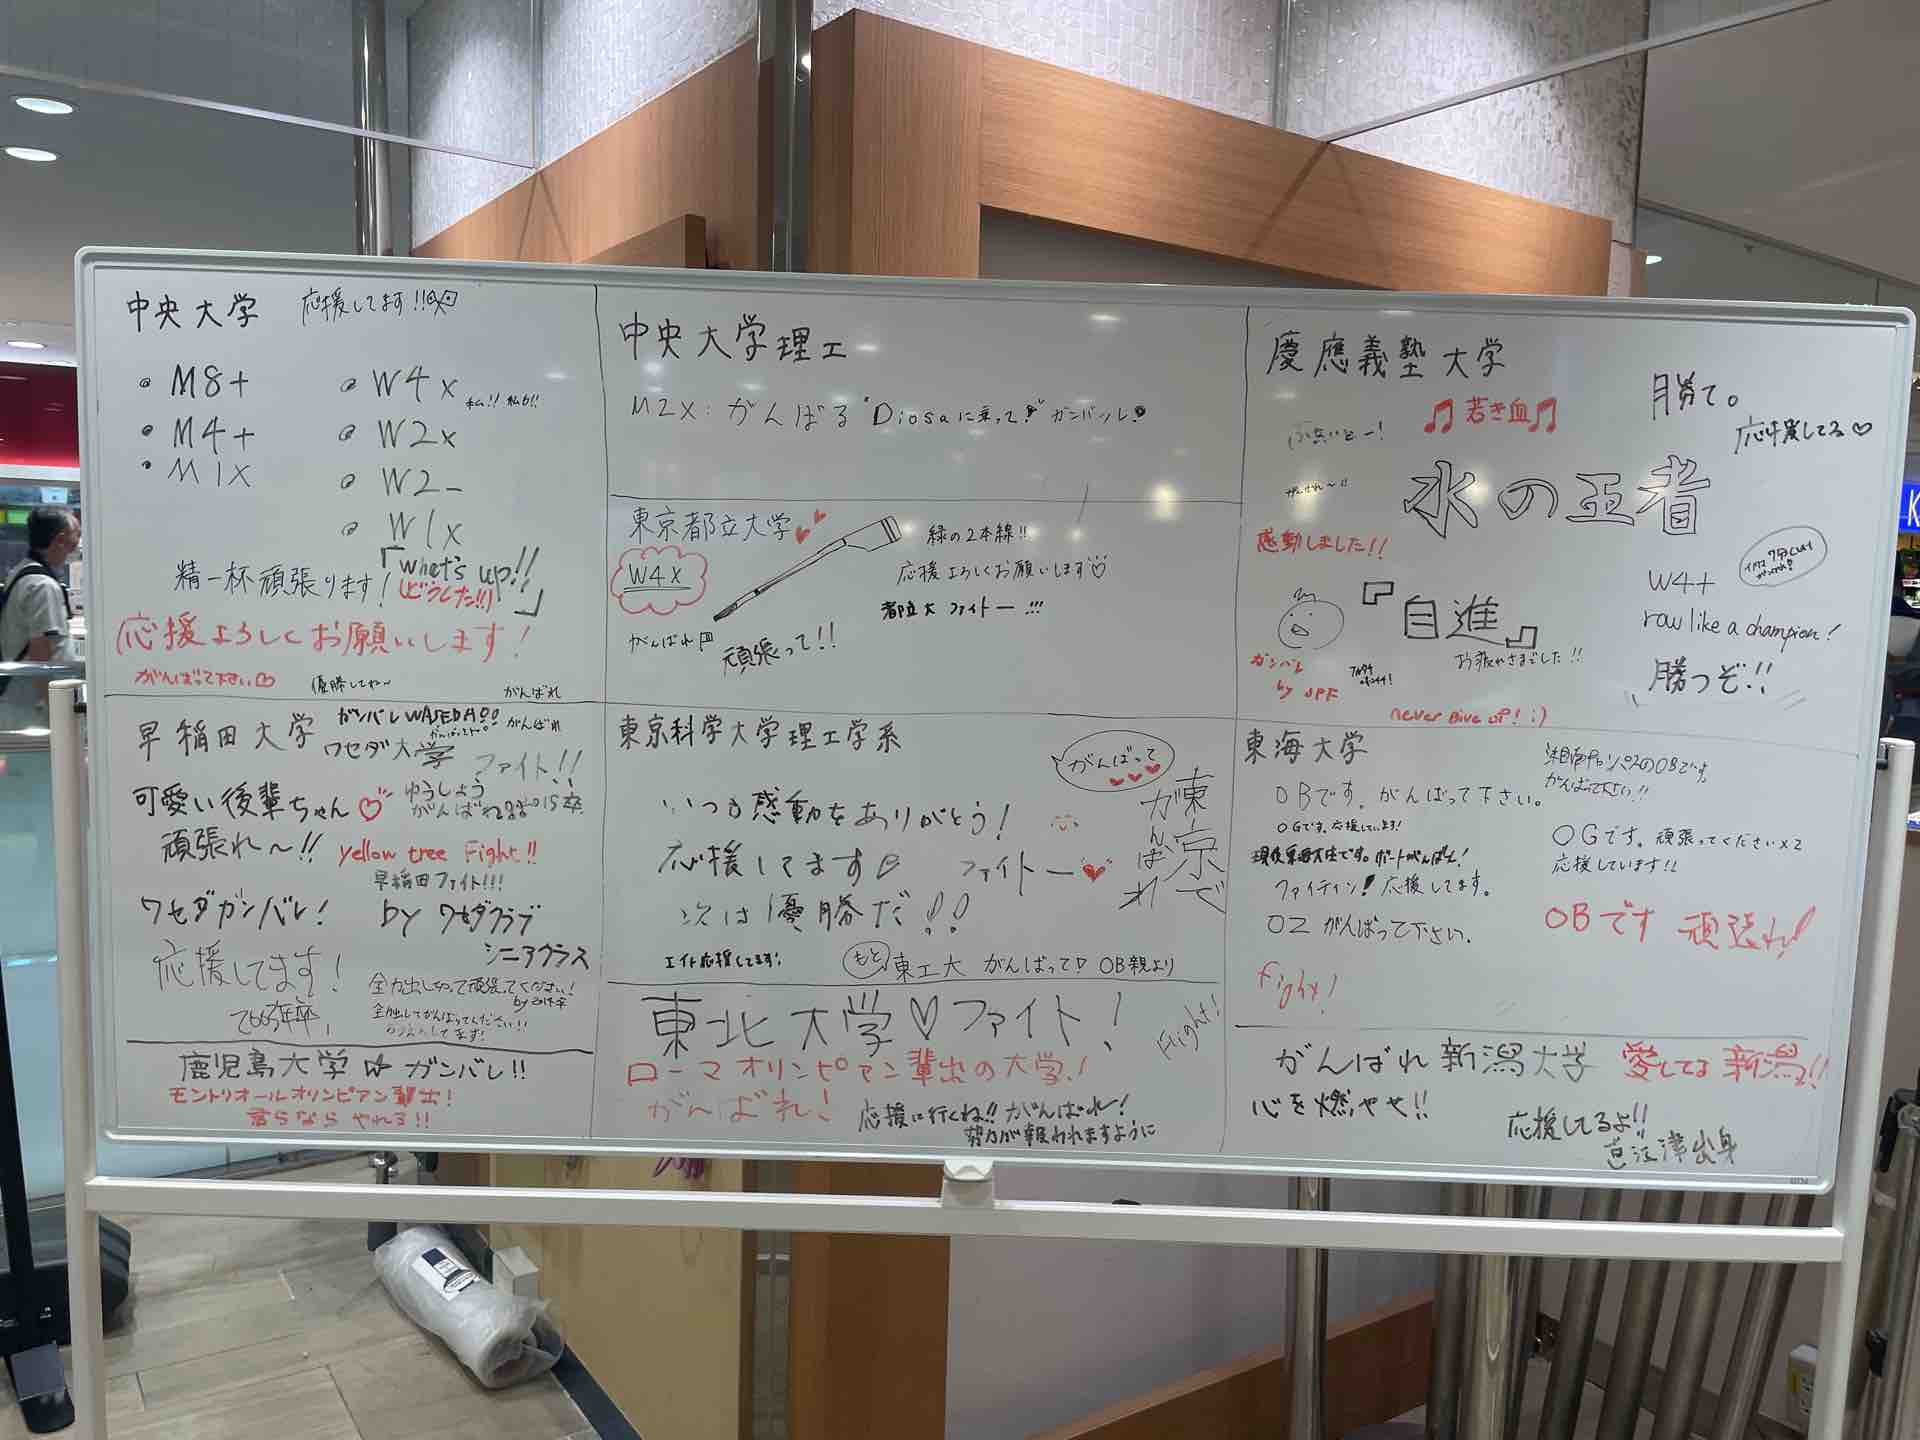 中央大学 応援してます!!
M8+
M4+
M1X
W4X 私!! 私も!!
W2X
W2-
W1X
精一杯頑張ります!
「what's up!!
(どうした!!)」
応援よろしくお願いします!
がんばって下さい
優勝してね~
がんばれ
中央大学理工
M2X:がんばる Diosaに乗って! ガンバッレ!
東京都立大学
W4X
緑の2本線!!
応援よろしくお願いします♡
都立大 ファイトー!!!
がんばれ
頑張って!!
慶應義塾大学
♫若き血♫
勝て。
応援してる♡
水の王者
感動しました!!
『自進』
W4+
row like a champion!
お疲れさまでした!!
勝つぞ!!
ガンバレ
by JPF
never give up! :)
早稲田大学
ガンバレWASEDA!!
がんばれ
ワセダ大学
ファイト!!
可愛い後輩ちゃん♡
頑張れ~!!
ゆうしょう
がんばれ
yellow tree Fight!!
早稲田ファイト!!!
ワセダガンバレ!
by ワセダクラブ
シニアクラス
応援してます!
全力出しきって頑張ってください!
鹿児島大学 ガンバレ!!
モントリオールオリンピアン輩出!
君らなら やれる!!
東京科学大学理工学系
がんばって
東京で
がんばれ
いつも感動をありがとう!
応援してます♡
ファイトー♥
次は優勝だ!!
エイト応援してます!
もと 東工大 がんばって! OB親より
東北大学♡ファイト!
Fight!
ローマオリンピアン輩出の大学!
がんばれ!
応援に行くね!! がんばれー!
努力が報われますように
東海大学
湘南キャンパスのOBです。
がんばって下さい!!
OBです。がんばって下さい。
OGです。応援しています!
OGです。頑張ってください×2
応援しています!!
現役東海大生です。ボートがんばれ!
ファイティン!応援してます。
OZ がんばって下さい.
OBです 頑張れ!
Fight!
がんばれ 新潟大学 愛してる 新潟!!
心を燃やせ!!
応援してるよ!!